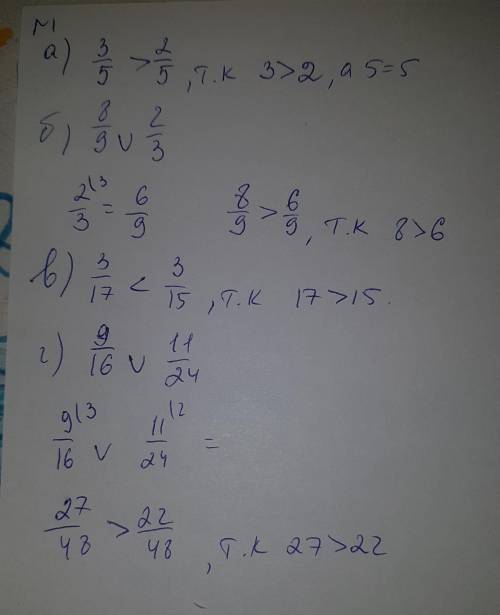 №1
а) 3/5 > 2/5, т.к 3>2, а 5=5
б) 8/9 ∨ 2/3
2/3 (3 = 6/9 8/9 > 6/9, т.к 8>6
в) 3/17 < 3/15, т.к 17>15.
г) 9/16 ∨ 11/24
9/16 (3 ∨ 11/24 (2 =
27/48 > 22/48, т.к 27>22